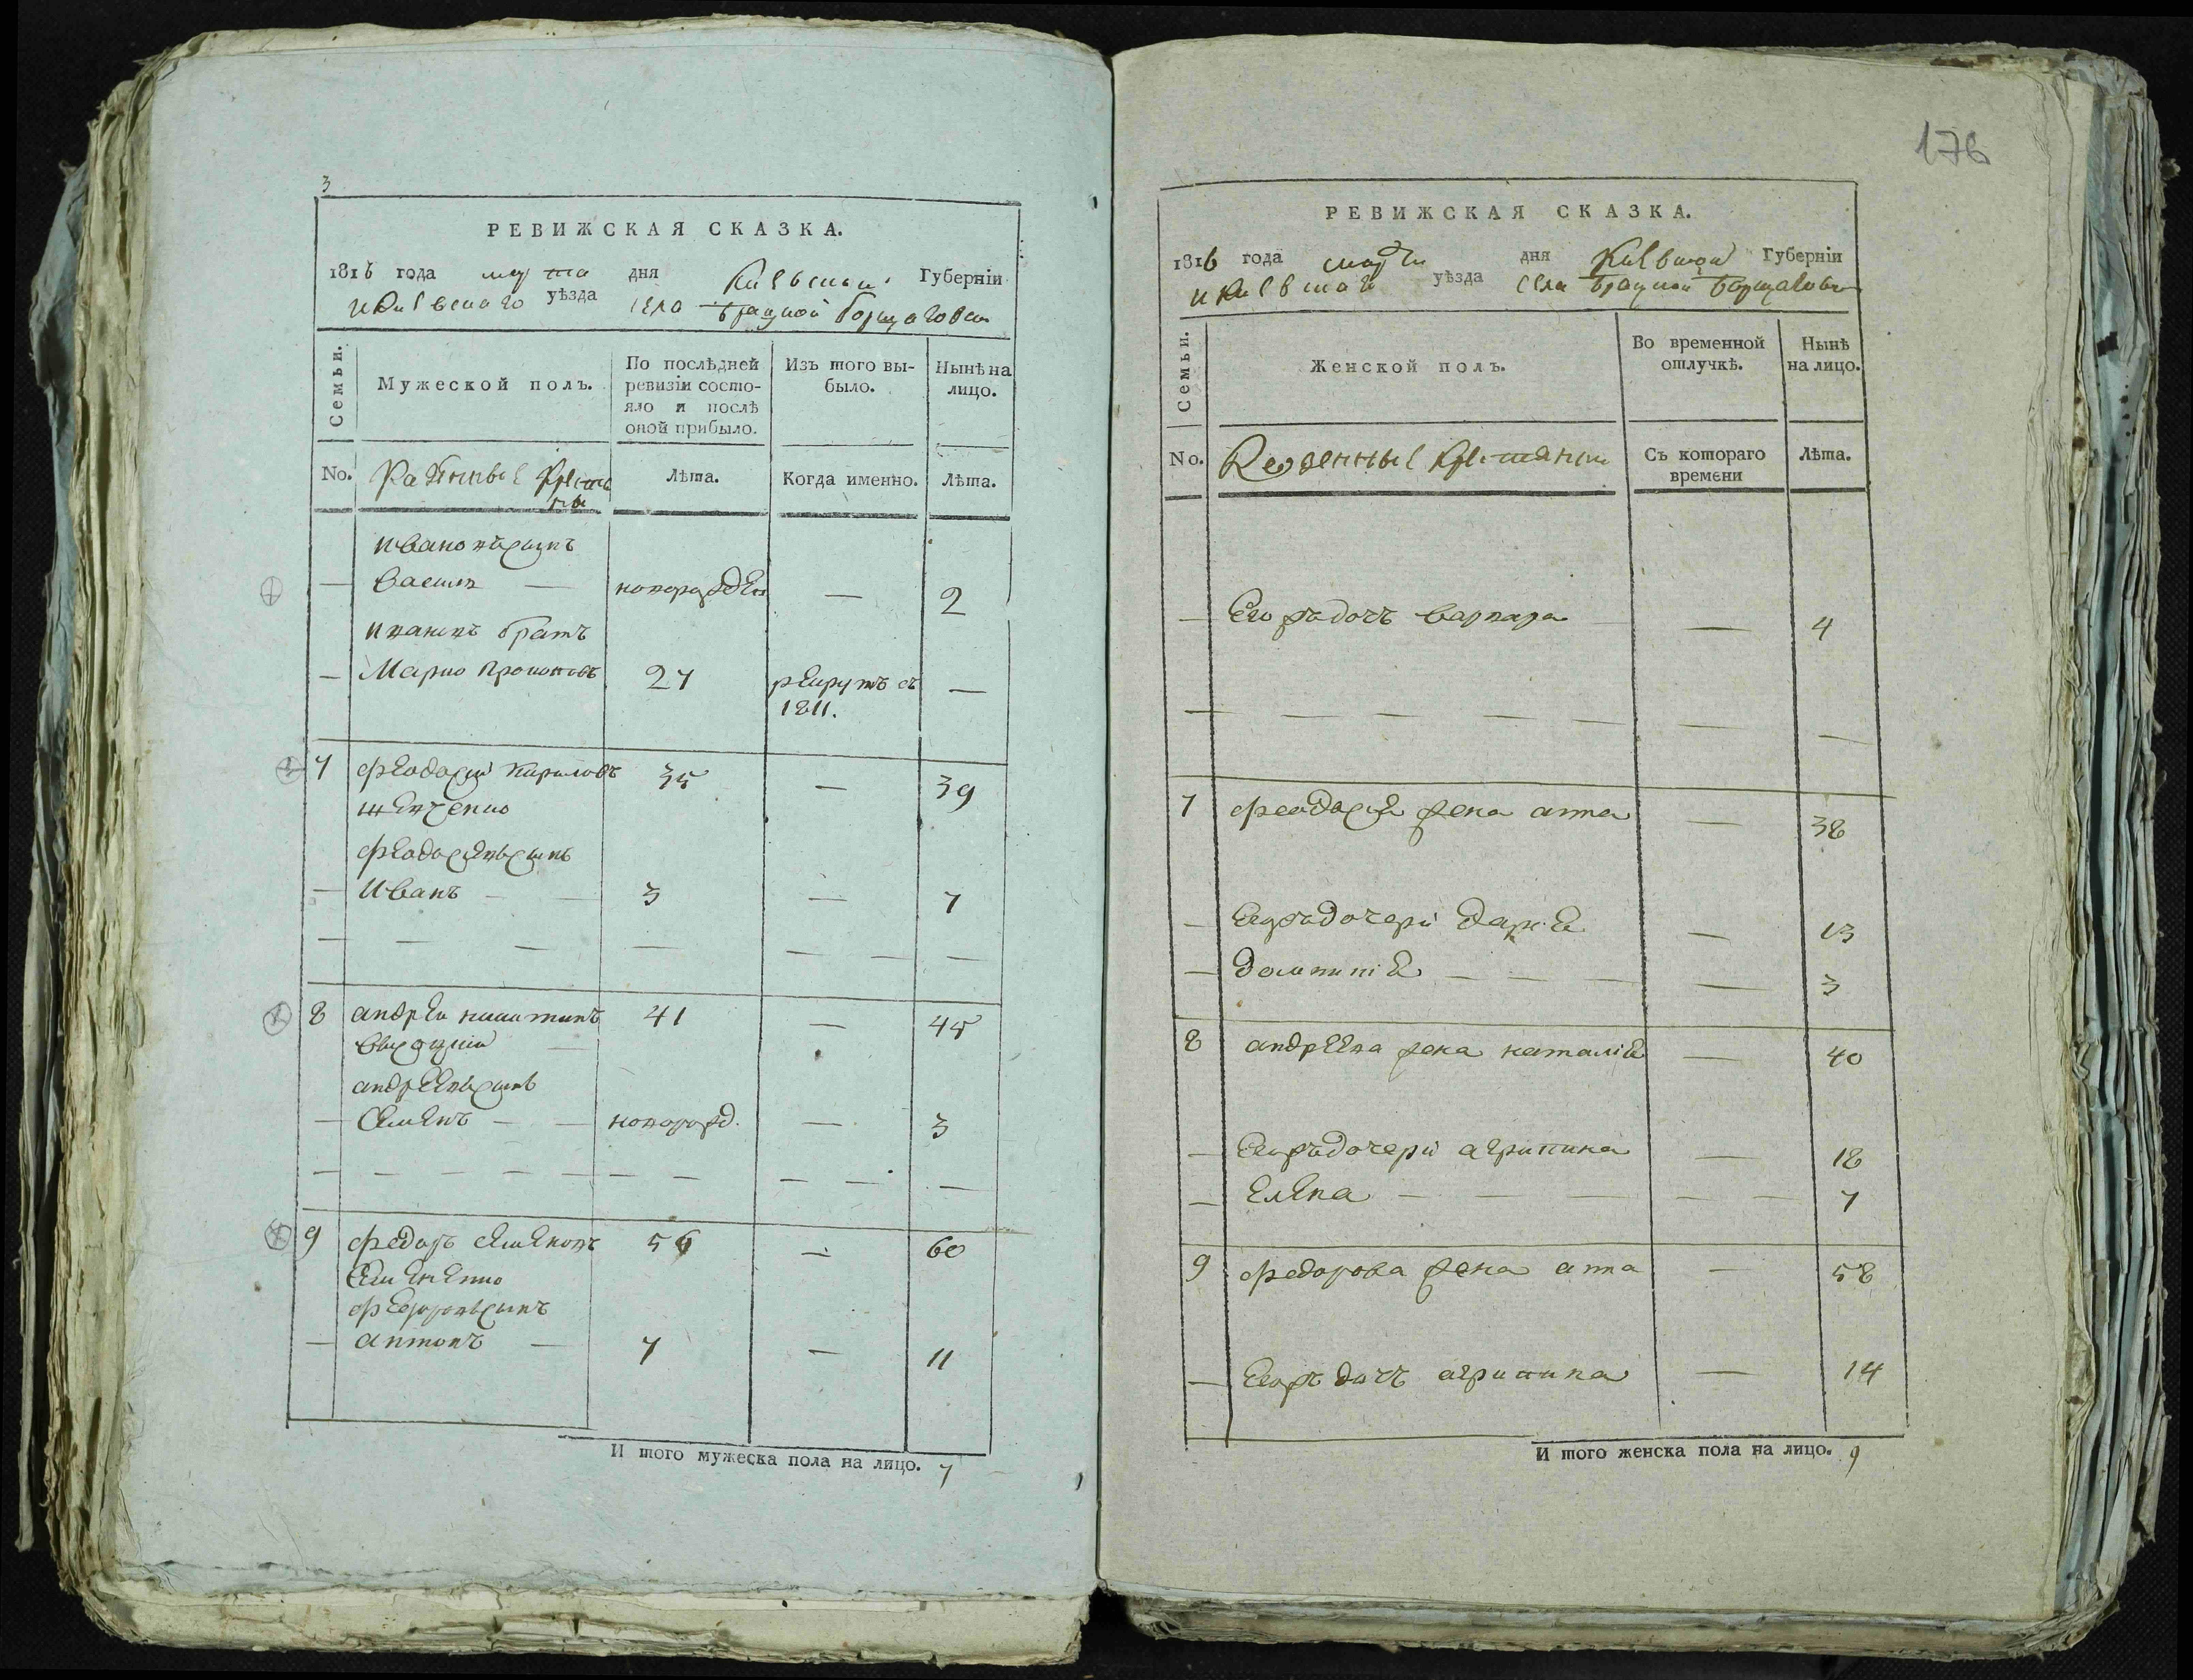 3
РЕВИЖСКАЯ СКАЗКА.
1816 года марта дня Киевской Губерніи
и Киевского уѣзда села Брацкой Борщаговки
Семьи.
Мужеской полъ.
По послѣдней ревизіи состо-
яло и послѣ
оной прибыло.
Изъ того вы-
было.
Нынѣ на
лицо.
No.
Казенные
Лѣта.
Когда именно.
Лѣта.
Ивановъ сынъ
— Василь — новорожден — 2
Ивановъ братъ
— Марко Прокоповъ 27 рекрутъ въ —
1811.
7 Феодосій Кириловъ 35 — 39
Шевченко
Феодосіевъ сынъ
— Иванъ — — 3 — 7
8 Андрей Никитинъ 41 — 45
Андреевъ сынъ
— Семенъ — — новорожд. — 3
9 Федоръ Семеновъ 56 — 60
Семененко
Федоровъ сынъ
— Антонъ — 7 — 11
И того мужеска пола на лицо. 7
176
РЕВИЖСКАЯ СКАЗКА.
1816 года марта дня Киевской Губерніи
и Киевского уѣзда села Брацкой Борщаговки
Семьи.
Женской полъ.
Во временной
отлучкѣ.
Нынѣ
на лицо.
No.
Казенные крестянки
Съ котораго
времени
Лѣта.
— Егожъ дочъ Варвара — 4
7 Феодосія жена Анна — 38
— Егожъ дочери Дария — 13
— Домникія — — — — 3
8 Андреева жена Наталія — 40
— Егожъ дочери Агрипина — 18
— Елена — — — — — 7
9 Федорова жена Анна — 58
— Егожъ дочъ Агрипина — 14
И того женска пола на лицо. 9